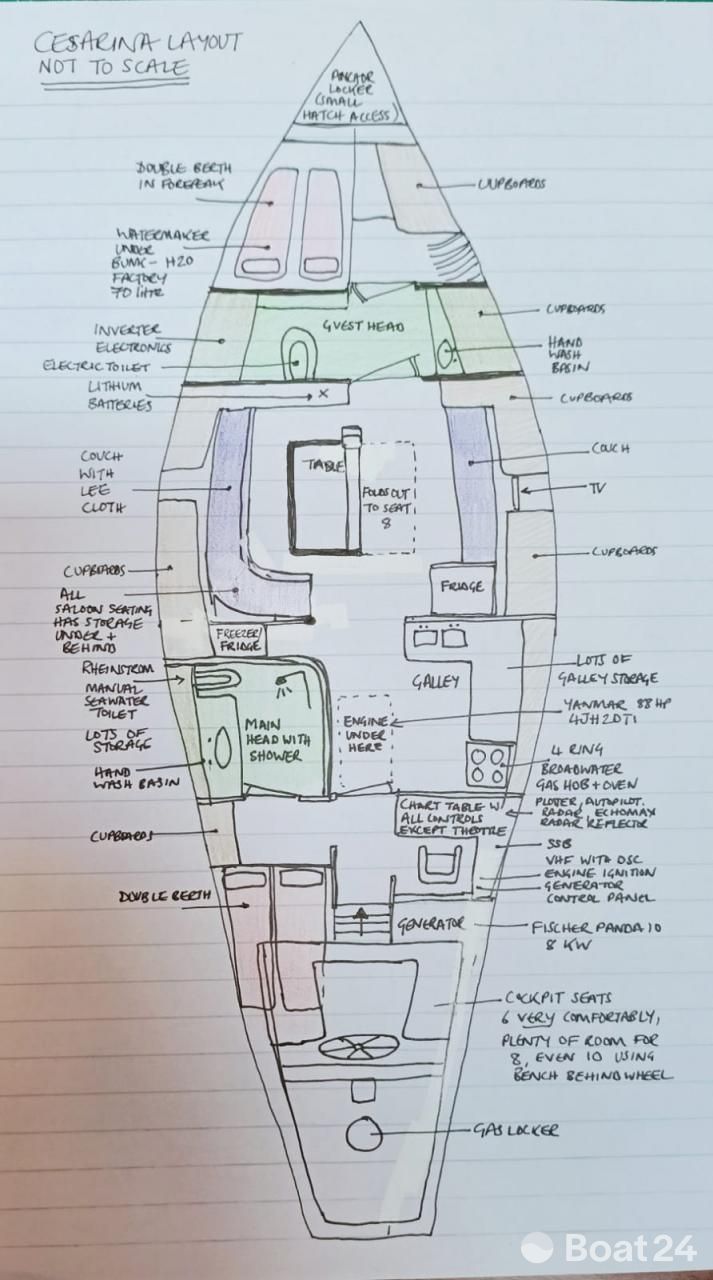 CESARINA LAYOUT
NOT TO SCALE
ANCHOR
LOCKER
(SMALL
HATCH ACCESS)
DOUBLE BERTH
IN FOREPEAK
CUPBOARDS
WATERMAKER
UNDER
BUNK - H2O
FACTORY
70 litre
CUPBOARDS
GUEST HEAD
INVERTER
ELECTRONICS
HAND
WASH
BASIN
ELECTRIC TOILET
LITHIUM
BATTERIES
X
CUPBOARDS
COUCH
WITH
LEE
CLOTH
COUCH
TABLE
FOLDS OUT
TO SEAT
8
TV
CUPBOARDS
CUPBOARDS
FRIDGE
ALL
SALOON SEATING
HAS STORAGE
UNDER +
BEHIND
FREEZER/
FRIDGE
RHEINSTROM
MANUAL
SEAWATER
TOILET
GALLEY
LOTS OF
GALLEY STORAGE
YANMAR 88HP
4JH2DTI
LOTS OF
STORAGE
MAIN
HEAD WITH
SHOWER
ENGINE
UNDER
HERE
HAND
WASH BASIN
4 RING
BROADWATER
GAS HOB + OVEN
CHART TABLE W/
ALL CONTROLS
EXCEPT THROTTLE
PLOTER, AUTOPILOT.
RADAR, ECHOMAX
RADAR REFLECTOR
CUPBOARDS
SSB
VHF WITH DSC
ENGINE IGNITION
GENERATOR
CONTROL PANEL
DOUBLE BERTH
GENERATOR
FISCHER PANDA 10
8 KW
COCKPIT SEATS
6 VERY COMFORTABLY,
PLENTY OF ROOM FOR
8, EVEN 10 USING
BENCH BEHIND WHEEL
GAS LOCKER
Boat24